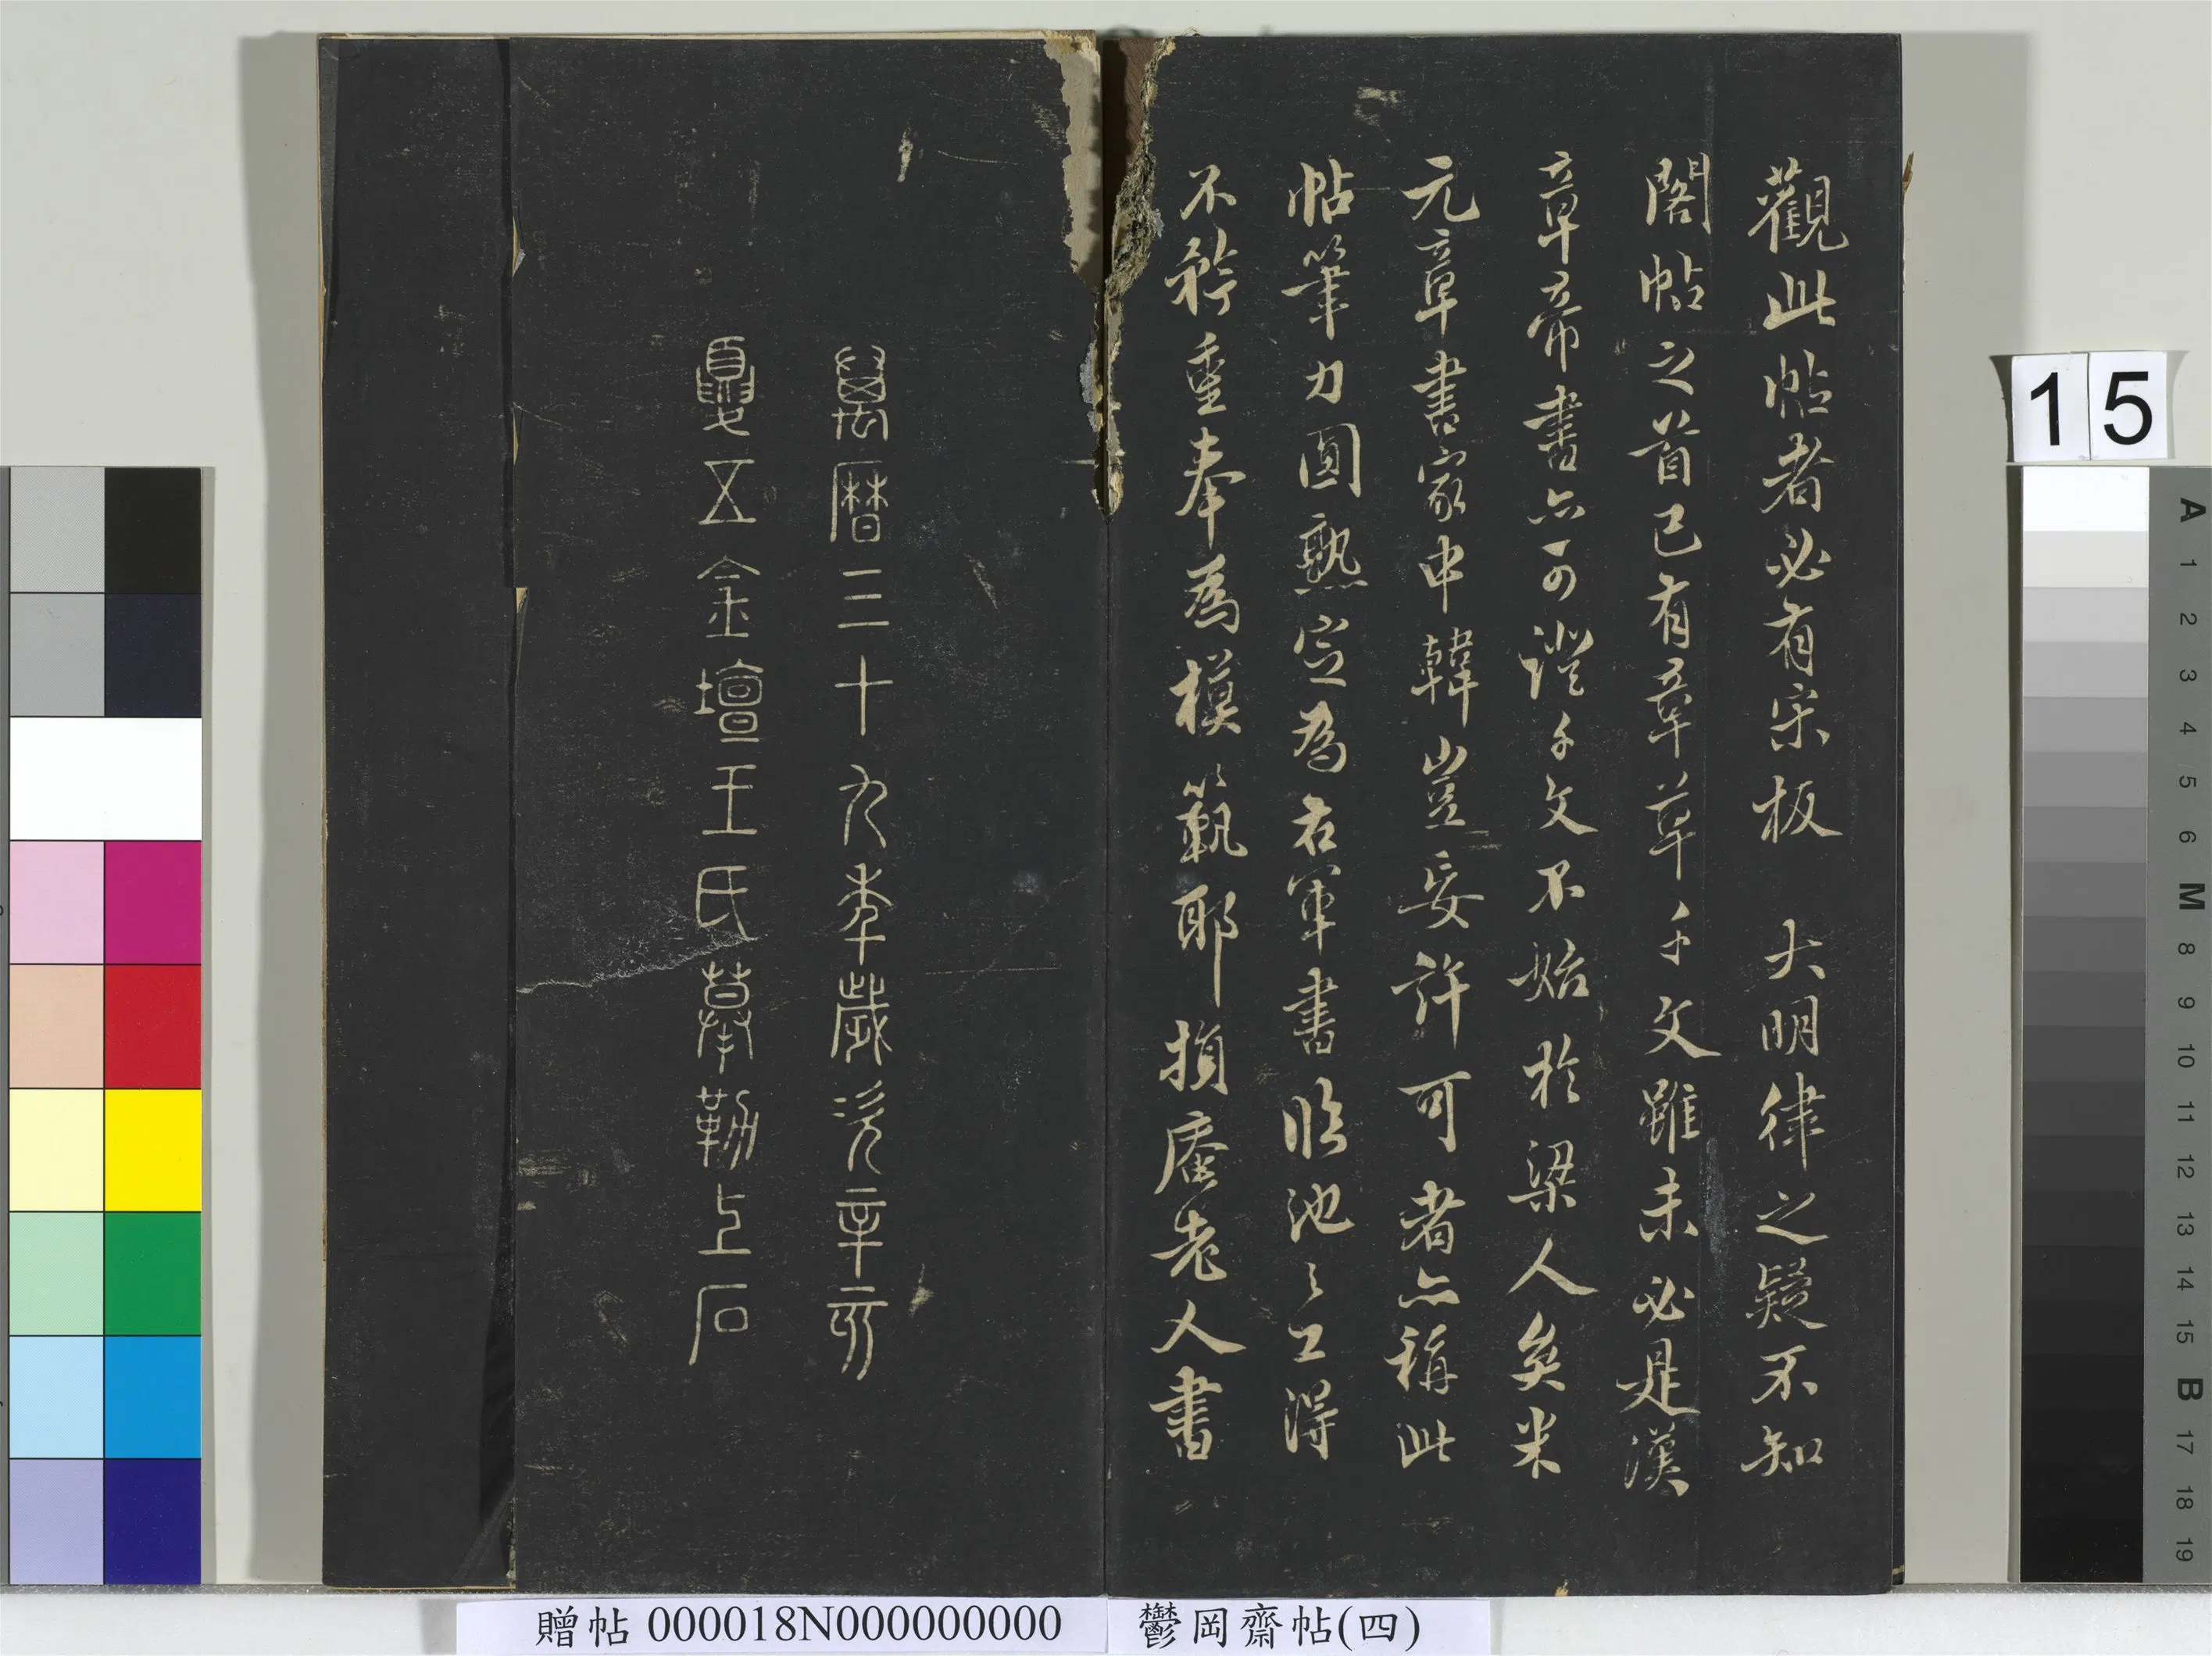 觀此帖者必有宋板　大明律之疑不知
閣帖之首已有章草千文雖未必是漢
章帝書亦可證千文不始於梁人矣米
元章書家申韓豈妄許可者亦稱此
帖筆力圓熟定為右軍書臨池之工得
不矜重奉為模範耶損庵老人書
萬曆三十九季歲次辛亥
夏五金壇王氏摹勒上石
15
A 1 2 3 4 5 6 M 8 9 10 11 12 13 14 15 B 17 18 19
贈帖 000018N000000000
鬱岡齋帖(四)